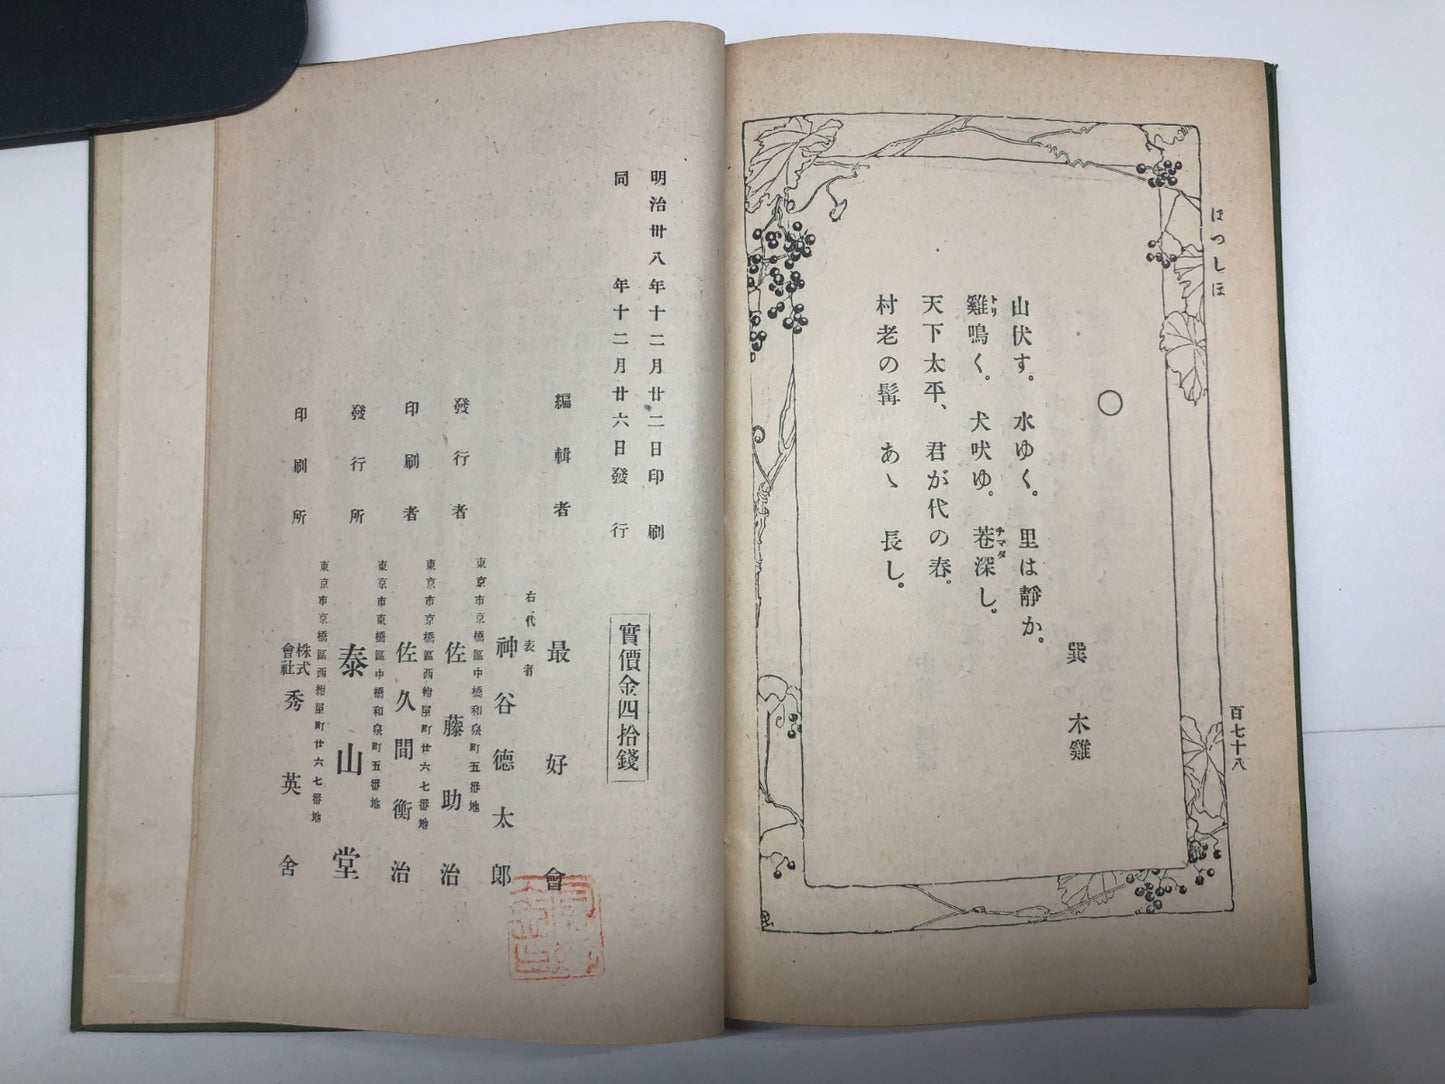 ほつしほ
百七十八
○
巽 木雞
山伏す。水ゆく。里は靜か。
雞鳴く。犬吠ゆ。巷深し。
トリ
チマダ
天下太平、君が代の春。
村老の髯 あゝ 長し。
明治卅八年十二月廿二日印刷
同 年十二月廿六日發行
實價金四拾錢
編輯者 最好會
右代表者 神谷德太郎
東京市京橋區中橋和泉町五番地
發行者 佐藤助治
東京市京橋區西紺屋町廿六七番地
印刷者 佐久間衡治
東京市東橋區中橋和泉町五番地
發行所 泰山堂
東京市京橋區西紺屋町廿六七番地
印刷所 株式會社 秀英舍